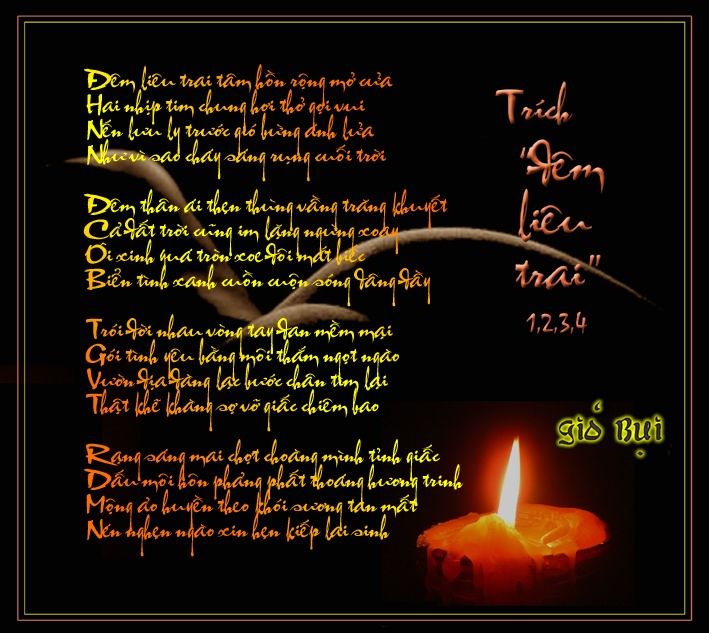 Đêm liêu trai tâm hồn rộng mở cửa
Hai nhịp tim chung hơi thở gợi vui
Nến lưu ly trước gió bừng ánh lửa
Như vì sao cháy sáng rụng cuối trời
Đêm thân ái thẹn thùng vầng trăng khuyết
Cả đất trời cũng im lặng ngưng xoay
Ôi xinh quá tròn xoe đôi mắt biếc
Biển tình xanh cuồn cuộn sóng dâng đầy
Trói đời nhau vòng tay đan mềm mại
Gói tình yêu bằng môi thắm ngọt ngào
Vườn địa đàng lạc bước chân tìm lại
Thật khẽ khàng sợ vỡ giấc chiêm bao
Rạng sáng mai chợt choàng mình tỉnh giấc
Dấu môi hôn phảng phất thoáng hương trinh
Mộng ảo huyền theo khói sương tan mất
Nén nghẹn ngào xin hẹn kiếp lai sinh
Trích
"đêm
liêu
trai"
1,2,3,4
gió Bụi